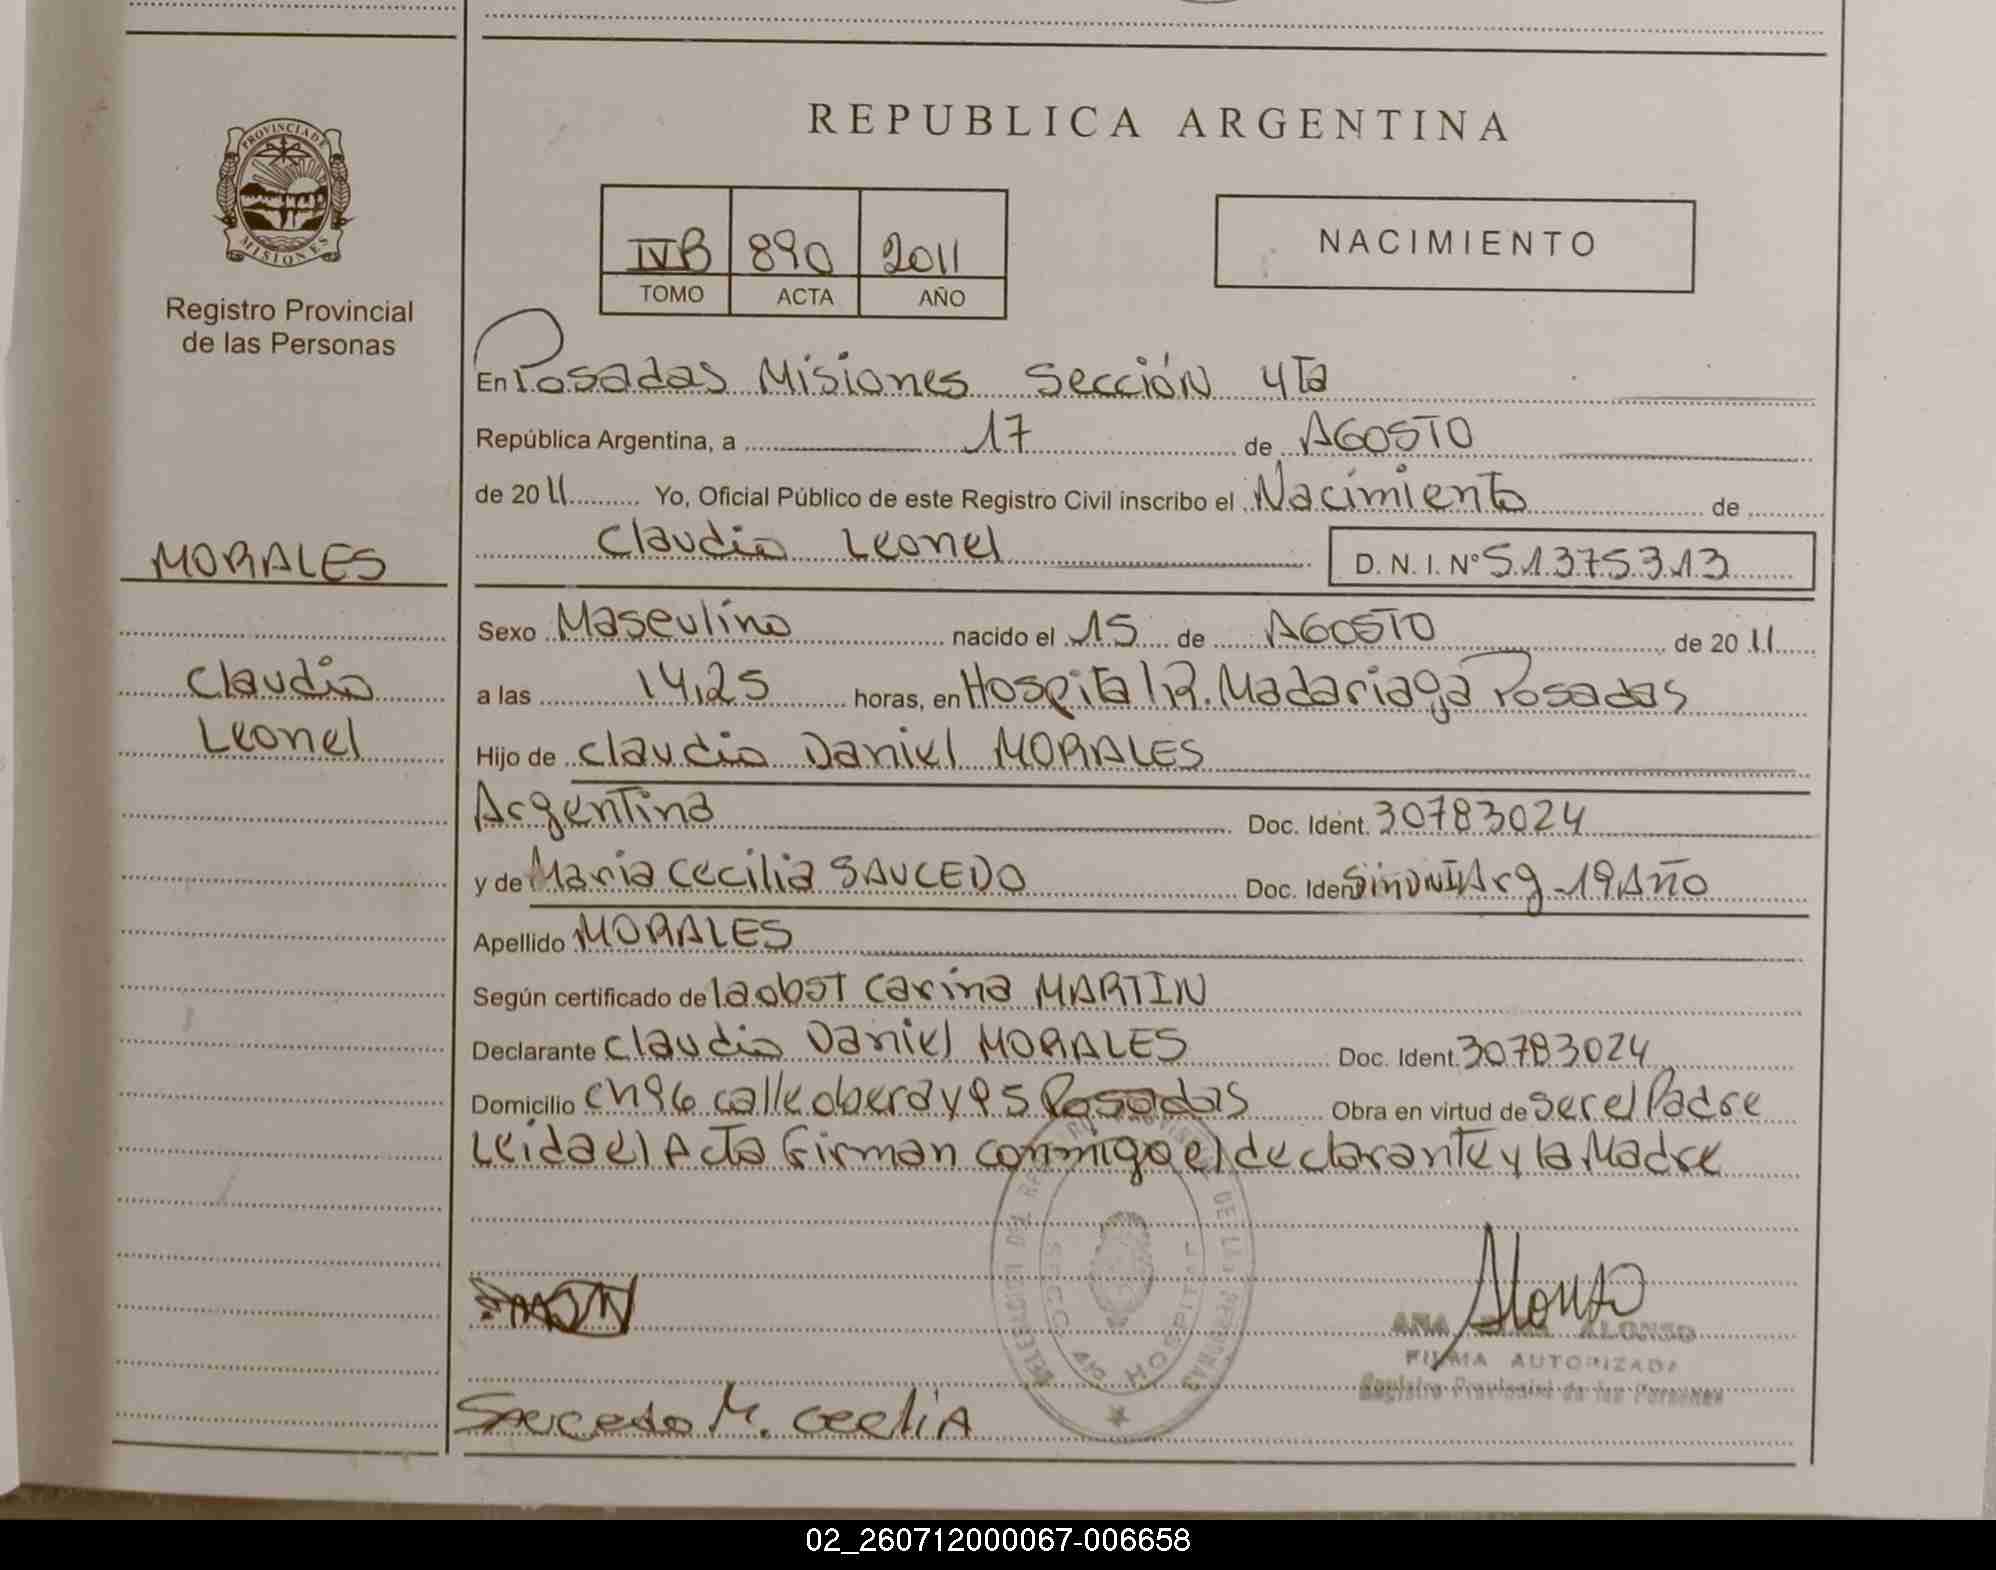 REPUBLICA ARGENTINA
PROVINCIA DE MISIONES
Registro Provincial
de las Personas
IVB 890 2011
TOMO ACTA AÑO
NACIMIENTO
En Posadas Misiones Sección 4Ta
República Argentina, a 17 de AGOSTO
de 2011 Yo, Oficial Público de este Registro Civil inscribo el Nacimiento de
Claudio Leonel D. N. I. Nº 51375313
MORALES
Claudio
Leonel
Sexo Masculino nacido el 15 de AGOSTO de 2011
a las 14,25 horas, en Hospital R. Madariaga Posadas
Hijo de Claudio Daniel MORALES
Argentina Doc. Ident. 30783024
y de Maria Cecilia SAUCEDO Doc. Iden Sin DNI Arg 19 Año
Apellido MORALES
Según certificado de la obst Carina MARTIN
Declarante Claudio Daniel MORALES Doc. Ident. 30783024
Domicilio CH 96 calle obera y 95 Posadas Obra en virtud de ser el Padre
Leida el Acta Firman conmigo el declarante y la Madre
DELEGACION DEL REG. PROVINC. DE LAS PERSONAS
SECC. 4ta HOSPITAL
Alonso
ANA ALONSO
FIRMA AUTORIZADA
Registro Provincial de las Personas
Saucedo M. Cecilia
02_260712000067-006658